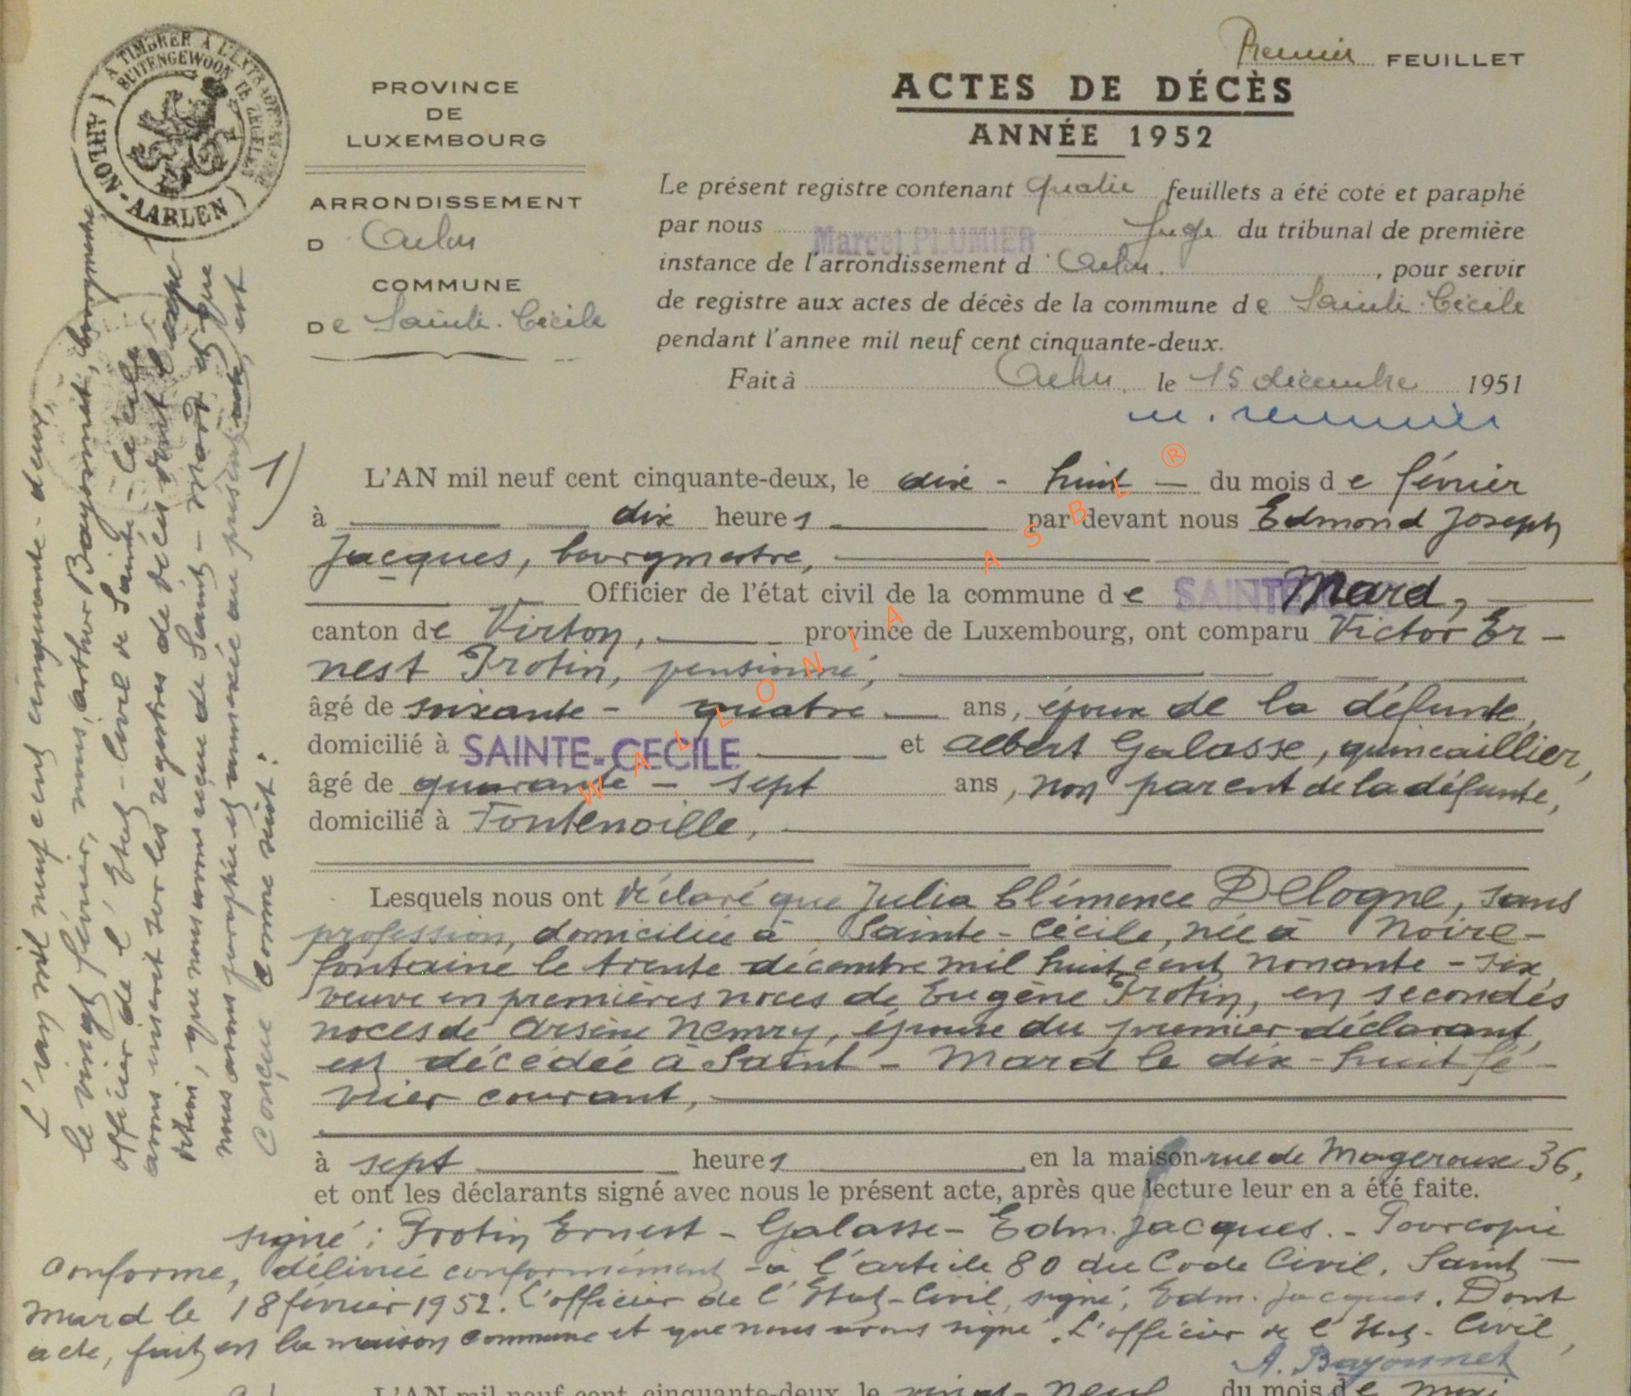 Premier FEUILLET
ACTES DE DÉCÈS
ANNÉE 1952
À TIMBRER À L'EXTRAORDINAIRE
BUITENGEWOON TE ZEGELEN
ARLON - AARLEN
PROVINCE
DE
LUXEMBOURG
ARRONDISSEMENT
D'Arlon
COMMUNE
De Sainte-Cécile
Le présent registre contenant quatre feuillets a été coté et paraphé
par nous Marcel PLUMIER Juge du tribunal de première
instance de l'arrondissement d'Arlon, pour servir
de registre aux actes de décès de la commune de Sainte-Cécile
pendant l'annee mil neuf cent cinquante-deux.
Fait à Arlon, le 15 décembre 1951
L'an mil neuf cent cinquante-deux,
le vingt février, nous, Arthur Bayonnet, bourgmestre,
officier de l'Etat-Civil de Sainte-Cécile
avons inscrit sur les registres de décès dont l'expé-
dition, que nous avons reçue de Saint-Mard et que
nous avons paraphée et annexée au présent acte, est
conçue comme suit :
1)
L'AN mil neuf cent cinquante-deux, le dix-huit du mois de février
à dix heures par devant nous Edmond Joseph
Jacques, bourgmestre,
Officier de l'état civil de la commune de SAINT Mard,
canton de Virton, province de Luxembourg, ont comparu Victor Er-
nest Frotin, pensionné,
âgé de soixante-quatre ans, époux de la défunte,
domicilié à SAINTE-CECILE et Albert Galasse, quincaillier,
âgé de quarante-sept ans, non parent de la défunte,
domicilié à Fontenoille,
Lesquels nous ont déclaré que Julia Clémence Delogne, sans
profession, domiciliée à Sainte-Cécile, née à Noire-
fontaine le trente décembre mil huit cent nonante-six,
veuve en premières noces de Eugène Frotin, en secondes
noces de Arsène Nemry, épouse du premier déclarant,
est décédée à Saint-Mard le dix-huit fé-
vrier courant,
à sept heures en la maison rue de Mageroux 36,
et ont les déclarants signé avec nous le présent acte, après que lecture leur en a été faite.
signé : Frotin Ernest - Galasse - Edm. Jacques. - Pour copie
conforme, délivrée conformément à l'article 80 du Code Civil. Saint-
Mard le 18 février 1952. L'officier de l'Etat-Civil, signé, Edm. Jacques. Dont
acte, fait en la maison commune et que nous avons signé. L'officier de l'Etat-Civil,
A. Bayonnet
L'AN mil neuf cent cinquante-deux, le vingt-neuf du mois de mai
WALLONIA ASBL ®